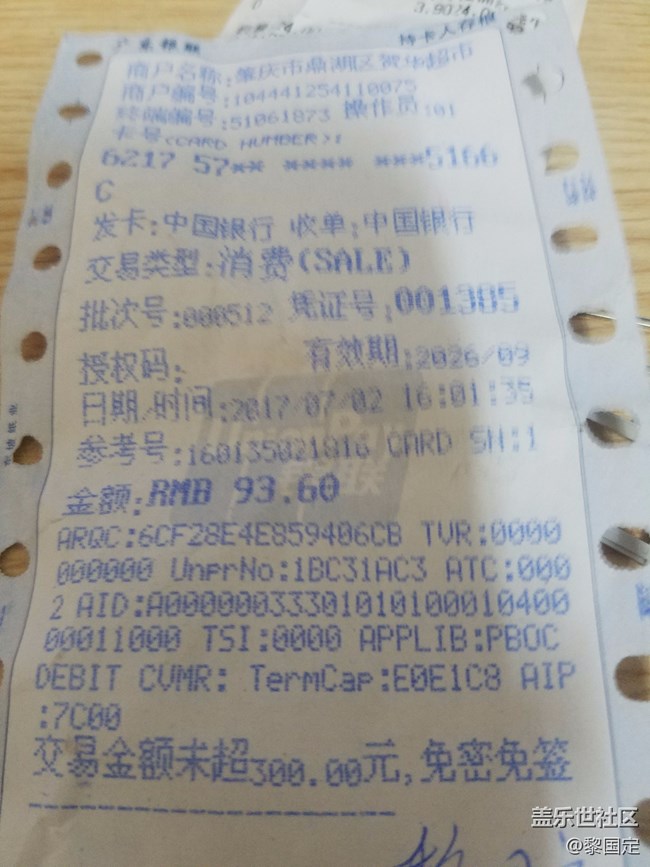 3.90/4.0
持卡人存根
商户名称:肇庆市鼎湖区贺华超市
商户编号:104441254110075
终端编号:51061873 操作员:01
卡号(CARD NUMBER):
6217 57** **** ***5166
C
发卡:中国银行 收单:中国银行
交易类型:消费(SALE)
批次号:000512 凭证号:001385
授权码: 有效期:2026/09
日期/时间:2017/07/02 16:01:35
参考号:160135021816 CARD SN:1
金额:RMB 93.60
ARQC:6CF28E4E859406CB TVR:0000
000000 UnprNo:1BC31AC3 ATC:000
2 AID:A00000033301010100010400
00011000 TSI:0000 APPLIB:PBOC
DEBIT CVMR: TermCap:E0E1C8 AIP
:7C00
交易金额未超300.00元,免密免签
盖乐世社区
@黎国定